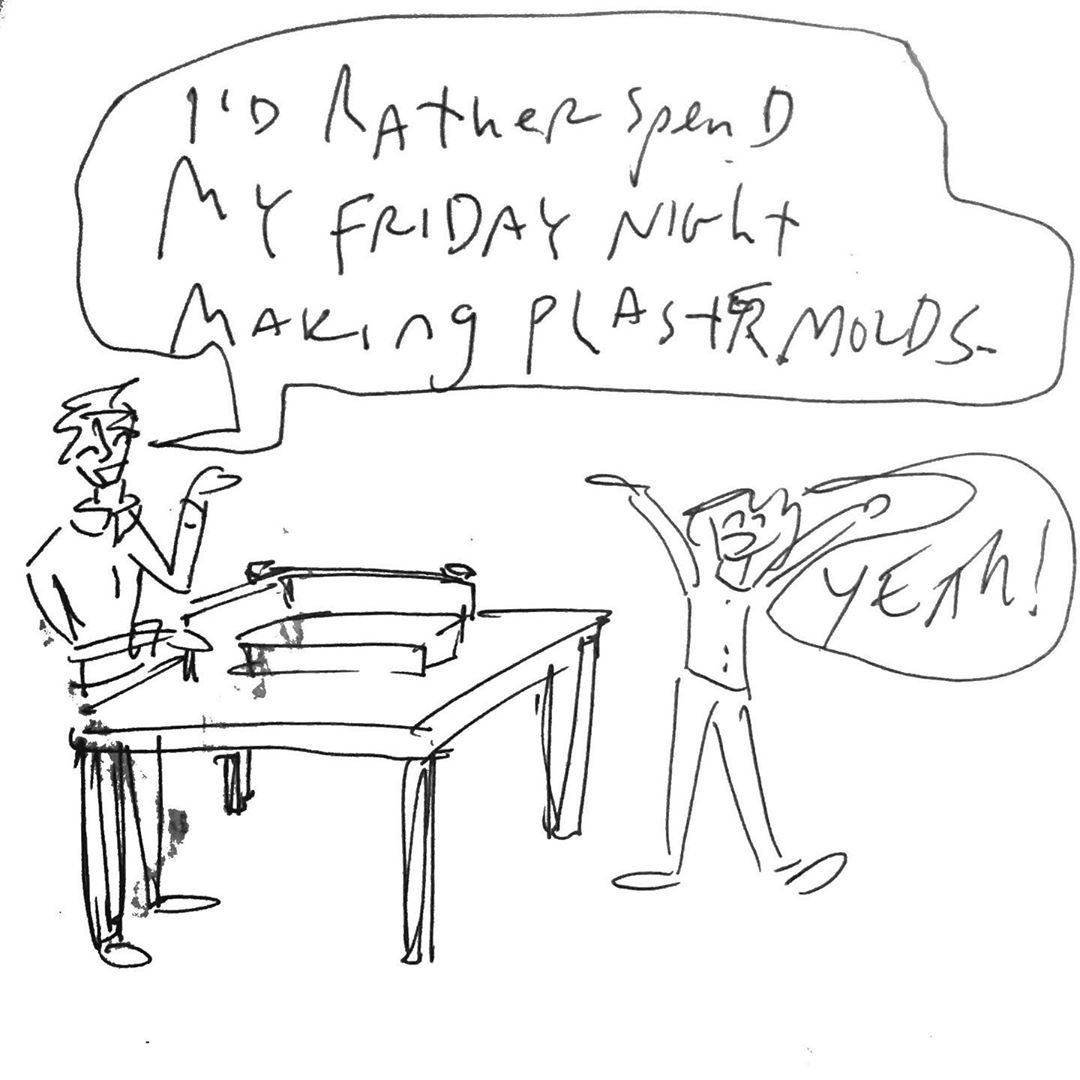 I'D RATHER SPEND
MY FRIDAY NIGHT
MAKING PLASTER MOLDS.
YEAH!